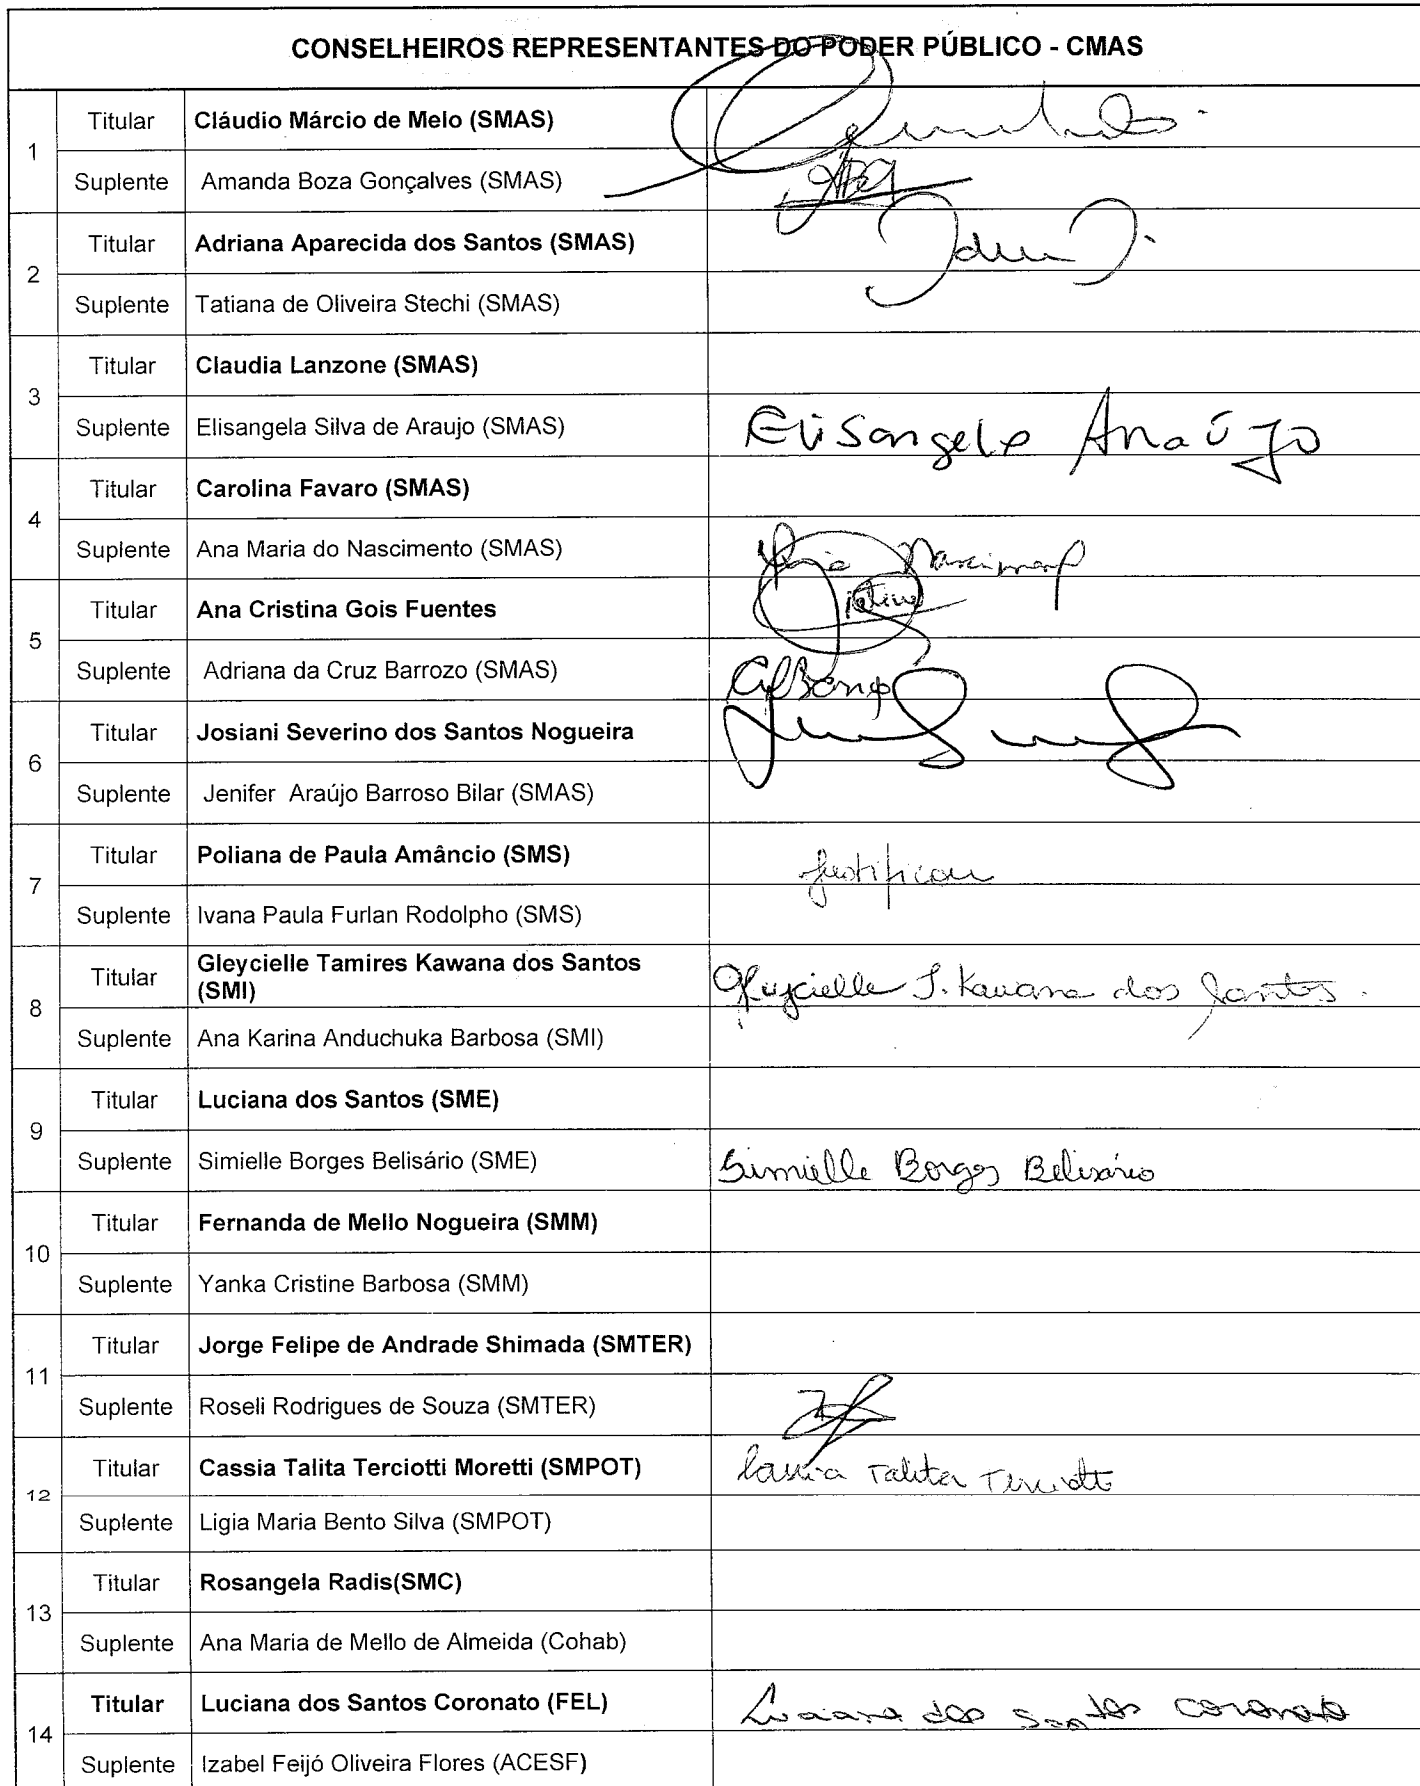 CONSELHEIROS REPRESENTANTES DO PODER PÚBLICO - CMAS
1
Titular Cláudio Márcio de Melo (SMAS)
Suplente Amanda Boza Gonçalves (SMAS)
2
Titular Adriana Aparecida dos Santos (SMAS)
Suplente Tatiana de Oliveira Stechi (SMAS)
3
Titular Claudia Lanzone (SMAS)
Suplente Elisangela Silva de Araujo (SMAS) Elisangela Araújo
4
Titular Carolina Favaro (SMAS)
Suplente Ana Maria do Nascimento (SMAS)
5
Titular Ana Cristina Gois Fuentes
Suplente Adriana da Cruz Barrozo (SMAS)
6
Titular Josiani Severino dos Santos Nogueira
Suplente Jenifer Araújo Barroso Bilar (SMAS)
7
Titular Poliana de Paula Amâncio (SMS) Justificou
Suplente Ivana Paula Furlan Rodolpho (SMS)
8
Titular Gleycielle Tamires Kawana dos Santos
(SMI) Gleycielle T. Kawana dos Santos.
Suplente Ana Karina Anduchuka Barbosa (SMI)
9
Titular Luciana dos Santos (SME)
Suplente Simielle Borges Belisário (SME) Simielle Borges Belisário
10
Titular Fernanda de Mello Nogueira (SMM)
Suplente Yanka Cristine Barbosa (SMM)
11
Titular Jorge Felipe de Andrade Shimada (SMTER)
Suplente Roseli Rodrigues de Souza (SMTER)
12
Titular Cassia Talita Terciotti Moretti (SMPOT) Cassia Talita Terciotti
Suplente Ligia Maria Bento Silva (SMPOT)
13
Titular Rosangela Radis(SMC)
Suplente Ana Maria de Mello de Almeida (Cohab)
14
Titular Luciana dos Santos Coronato (FEL) Luciana dos Santos Coronato
Suplente Izabel Feijó Oliveira Flores (ACESF)